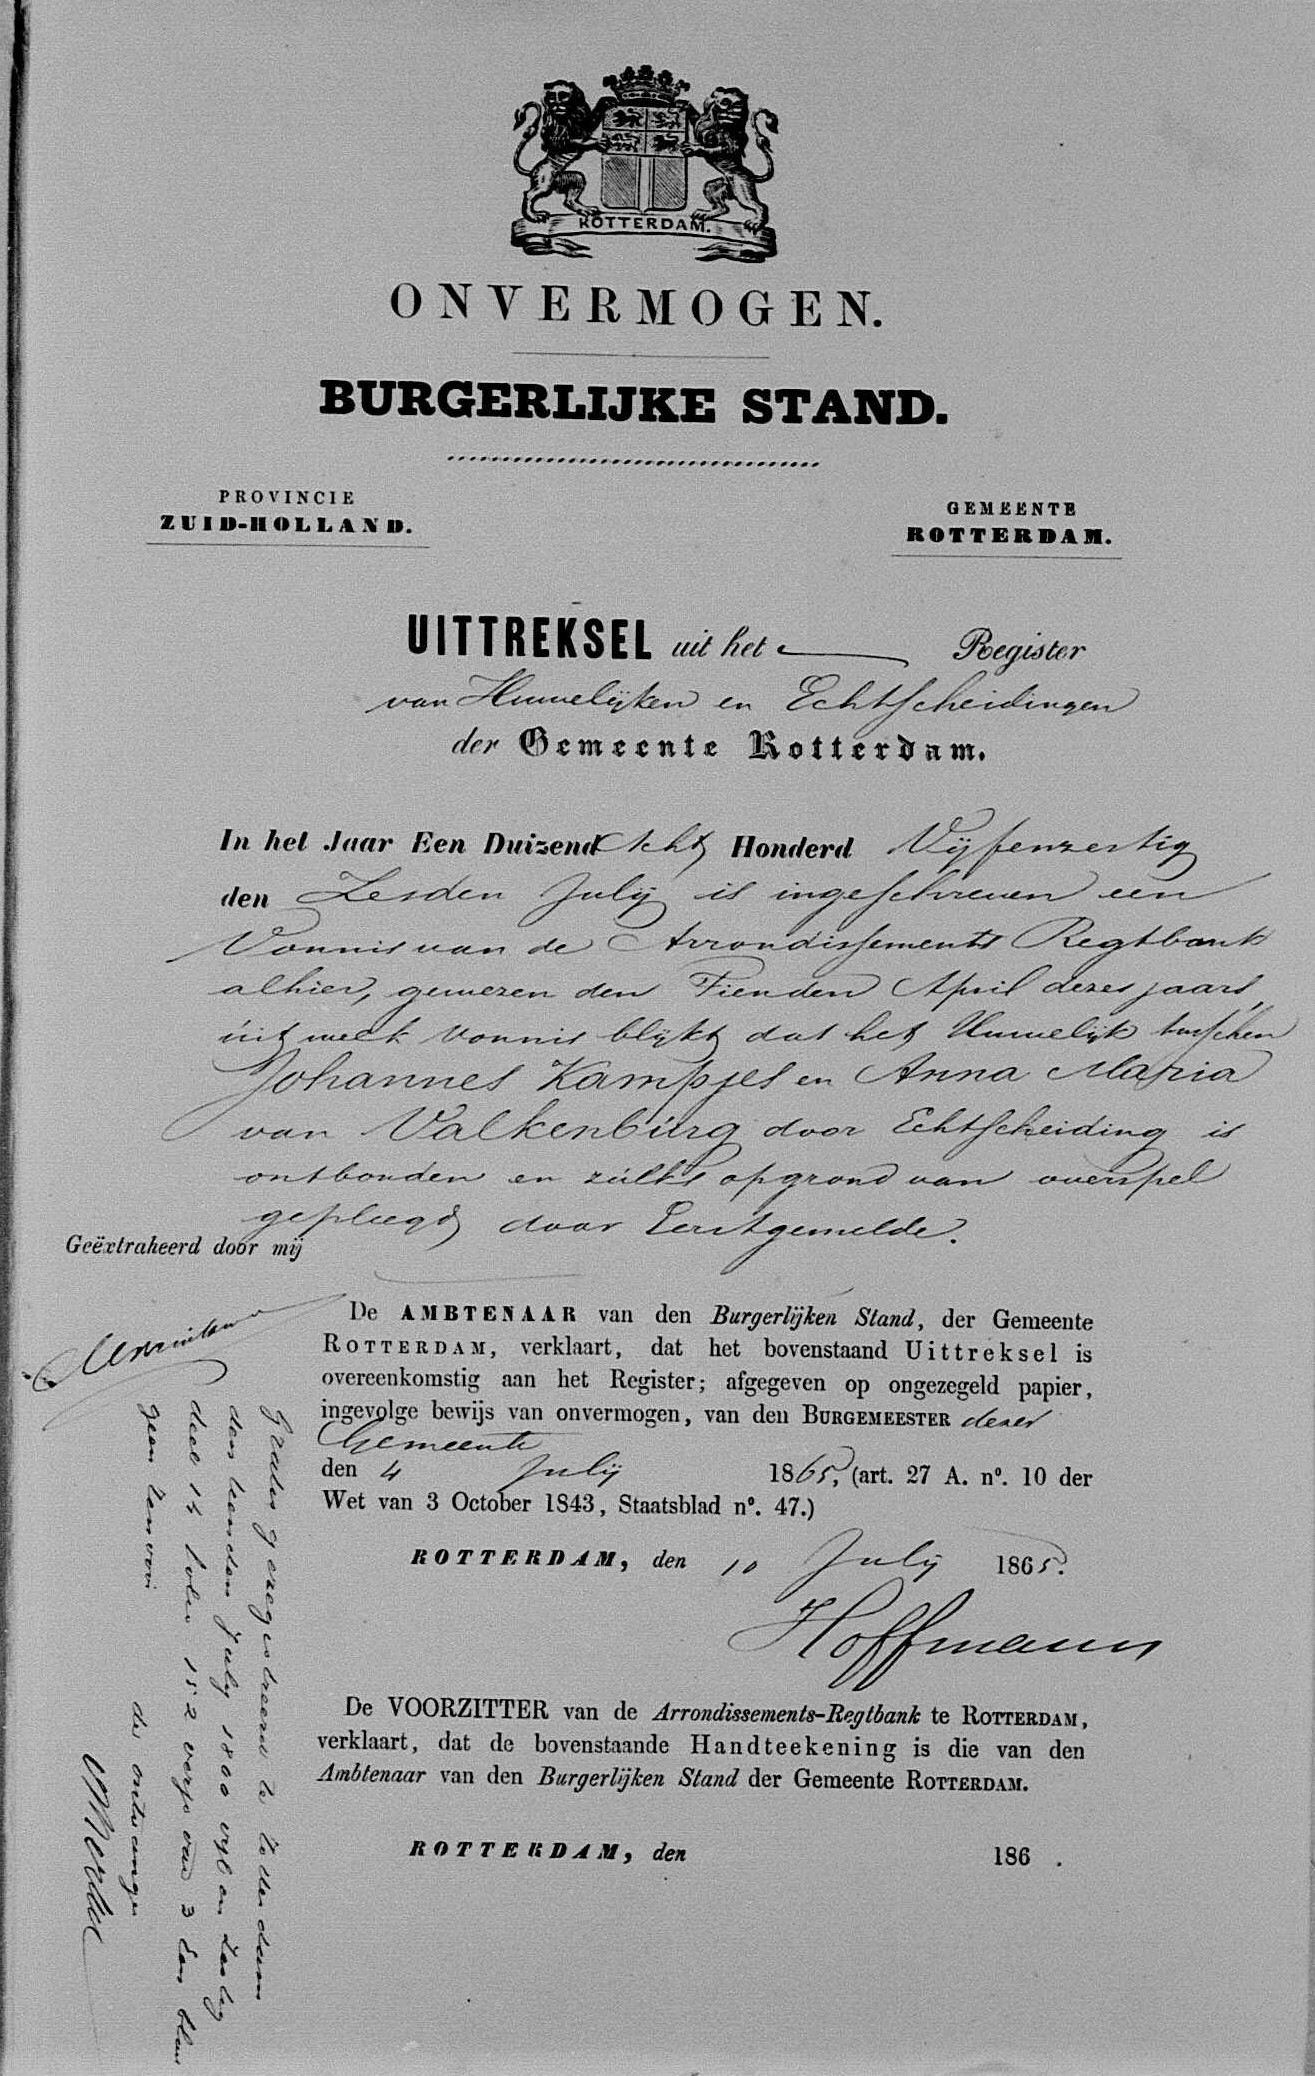 ROTTERDAM.
ONVERMOGEN.
BURGERLIJKE STAND.
PROVINCIE
ZUID-HOLLAND.
GEMEENTE
ROTTERDAM.
UITTREKSEL uit het Register
van Huwelijken en Echtscheidingen
der Gemeente Rotterdam.
In het Jaar Een Duizend Acht Honderd Vijfenzestig
den Zesden Julij is ingeschreven een
Vonnis van de Arrondissements Regtbank
alhier, gewezen den Tienden April dezes jaars,
uit welk vonnis blijkt dat het Huwelijk tusschen
Johannes Kampjes en Anna Maria
van Valkenburg door Echtscheiding is
ontbonden en zulks op grond van overspel
gepleegd door Eerstgemelde.
Geëxtraheerd door mij
De AMBTENAAR van den Burgerlijken Stand, der Gemeente
ROTTERDAM, verklaart, dat het bovenstaand Uittreksel is
overeenkomstig aan het Register; afgegeven op ongezegeld papier,
ingevolge bewijs van onvermogen, van den BURGEMEESTER dezer
Gemeente
den 4 Julij 1865, (art. 27 A. n°. 10 der
Wet van 3 October 1843, Staatsblad n°. 47.)
ROTTERDAM, den 10 Julij 1865.
Hoffmann
De VOORZITTER van de Arrondissements-Regtbank te ROTTERDAM,
verklaart, dat de bovenstaande Handteekening is die van den
Ambtenaar van den Burgerlijken Stand der Gemeente ROTTERDAM.
ROTTERDAM, den 186 .
Gratis geregistreerd te Rotterdam
den tienden July 1800 vyf en zestig
deel 14 folio 152 verso vak 3 een blad
geen renvooi
de ontvanger